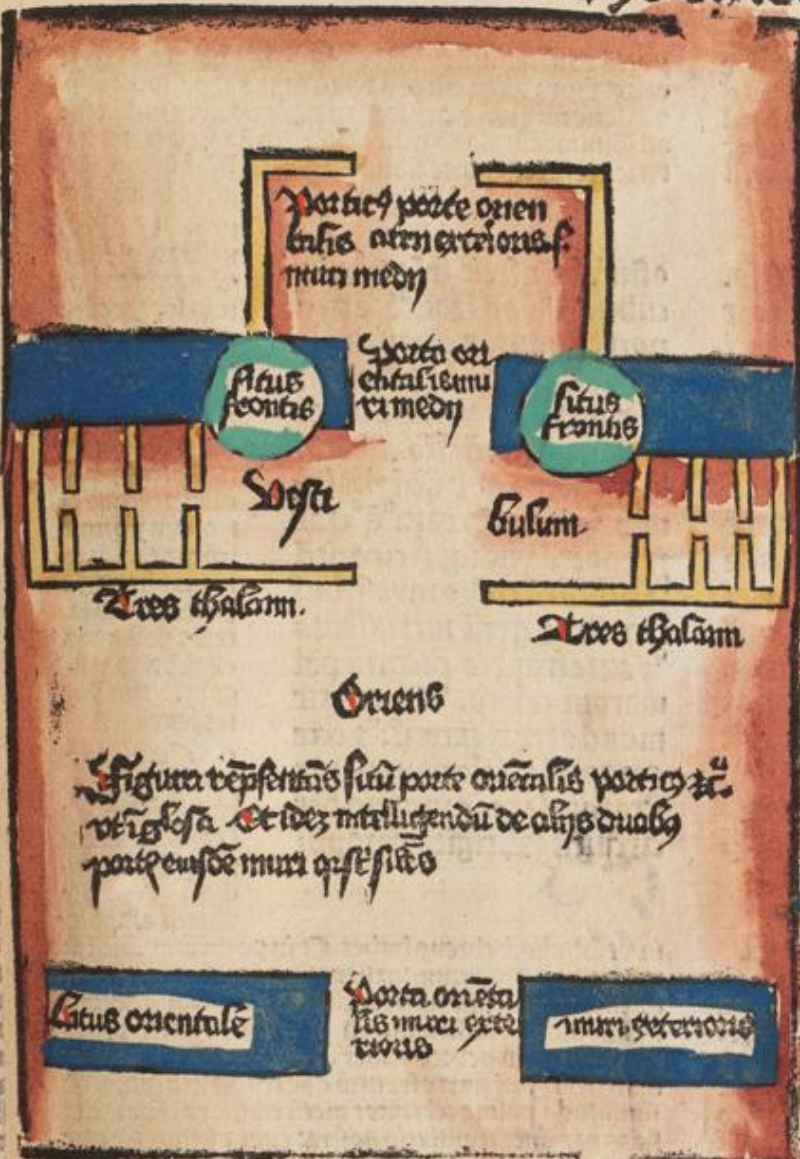 Porticꝯ porte orien
talis atrii exterioris .s.
muri medij
Porta ori
entalis mu
ri medij
situs
frontis
situs
frontis
Vesti
bulum
Tres thalami.
Tres thalami
Oriens
Figura rep̄sentās sitū porte oriētalis porticꝯ
vt ī glosa Et idez intelligendū de alijs duabꝯ
eiusdē muri
Latus orientale
Porta oriēta
lis muri exte
rioris
muri exterioris